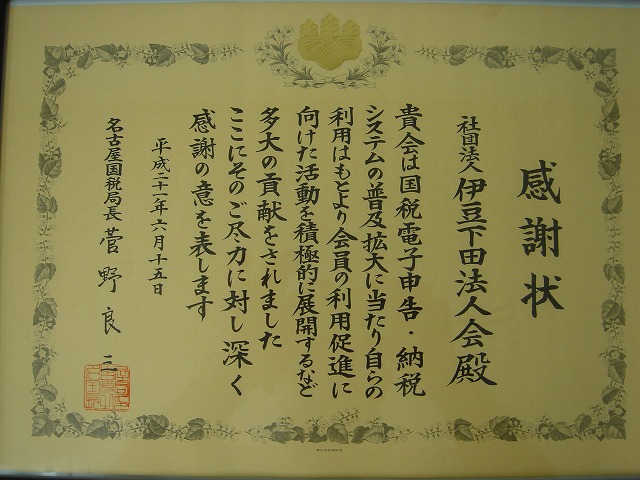 感謝状
社団法人 伊豆下田法人会殿
貴会は国税電子申告・納税
システムの普及拡大に当たり自らの
利用はもとより会員の利用促進に
向けた活動を積極的に展開するなど
多大の貢献をされました
ここにそのご尽力に対し深く
感謝の意を表します
平成二十一年六月十五日
名古屋国税局長 菅野良三